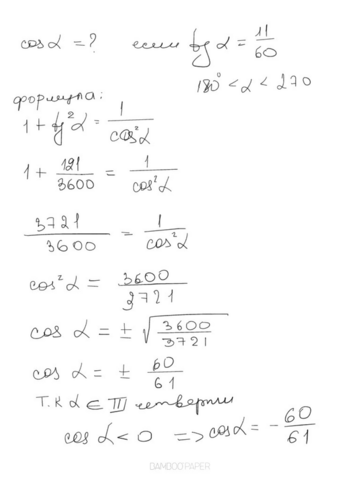 cos α = ? если tg α = 11/60
180° < α < 270
формула:
1 + tg²α = 1/cos²α
1 + 121/3600 = 1/cos²α
3721/3600 = 1/cos²α
cos²α = 3600/3721
cos α = ± √(3600/3721)
cos α = ± 60/61
Т.К α ∈ III четверти
cos α < 0 => cos α = - 60/61